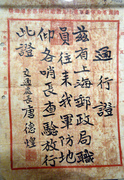 通行證
茲有上海郵政局職
員往來我軍防地
仰各哨長查驗放行
此證